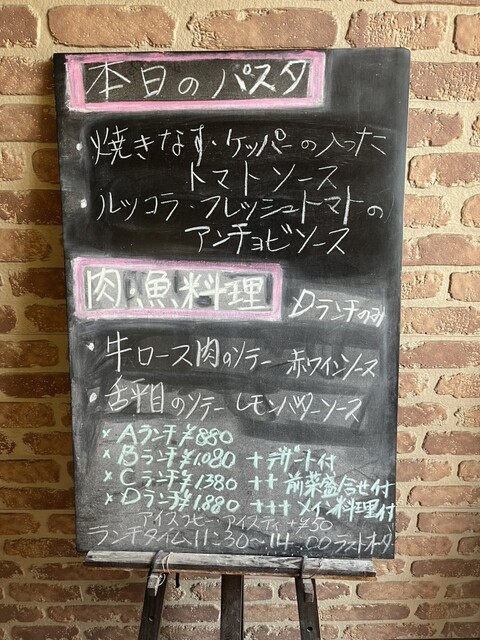 本日のパスタ
・焼きなす・ケッパーの入った
トマトソース
・ルッコラ・フレッシュトマトの
アンチョビソース
肉・魚料理 Dランチのみ
・牛ロース肉のソテー 赤ワインソース
・舌平目のソテー レモンバターソース
×Aランチ¥880
×Bランチ¥1,080 +デザート付
×Cランチ¥1,380 ++前菜盛合せ付
×Dランチ¥1,880 +++メイン料理付
アイスコーヒー・アイスティ+¥50
ランチタイム11:30〜14:00ラストオーダー